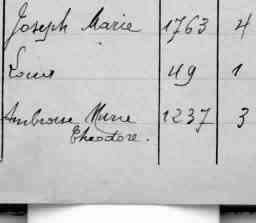 Joseph Marie 1763 4
Louis 49 1
Ambroise Marie 1237 3
Théodore.